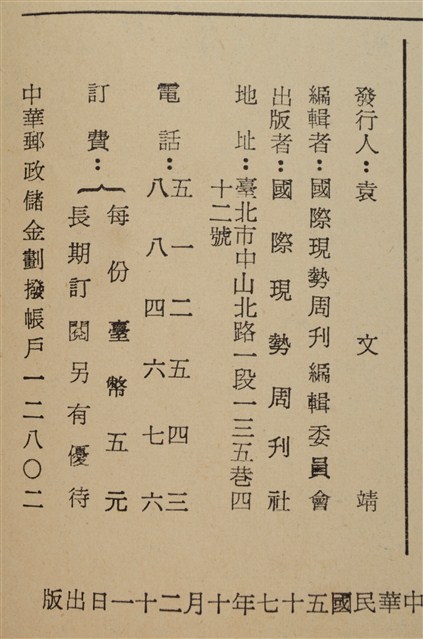 發行人：袁文靖
編輯者：國際現勢周刊編輯委員會
出版者：國際現勢周刊社
地址：臺北市中山北路一段一三五巷四
十二號
電話：五一二五四三
八八四六七六
訂費：每份臺幣五元
長期訂閱另有優待
中華郵政儲金劃撥帳戶一二八〇二
中華民國五十七年十月二十一日出版